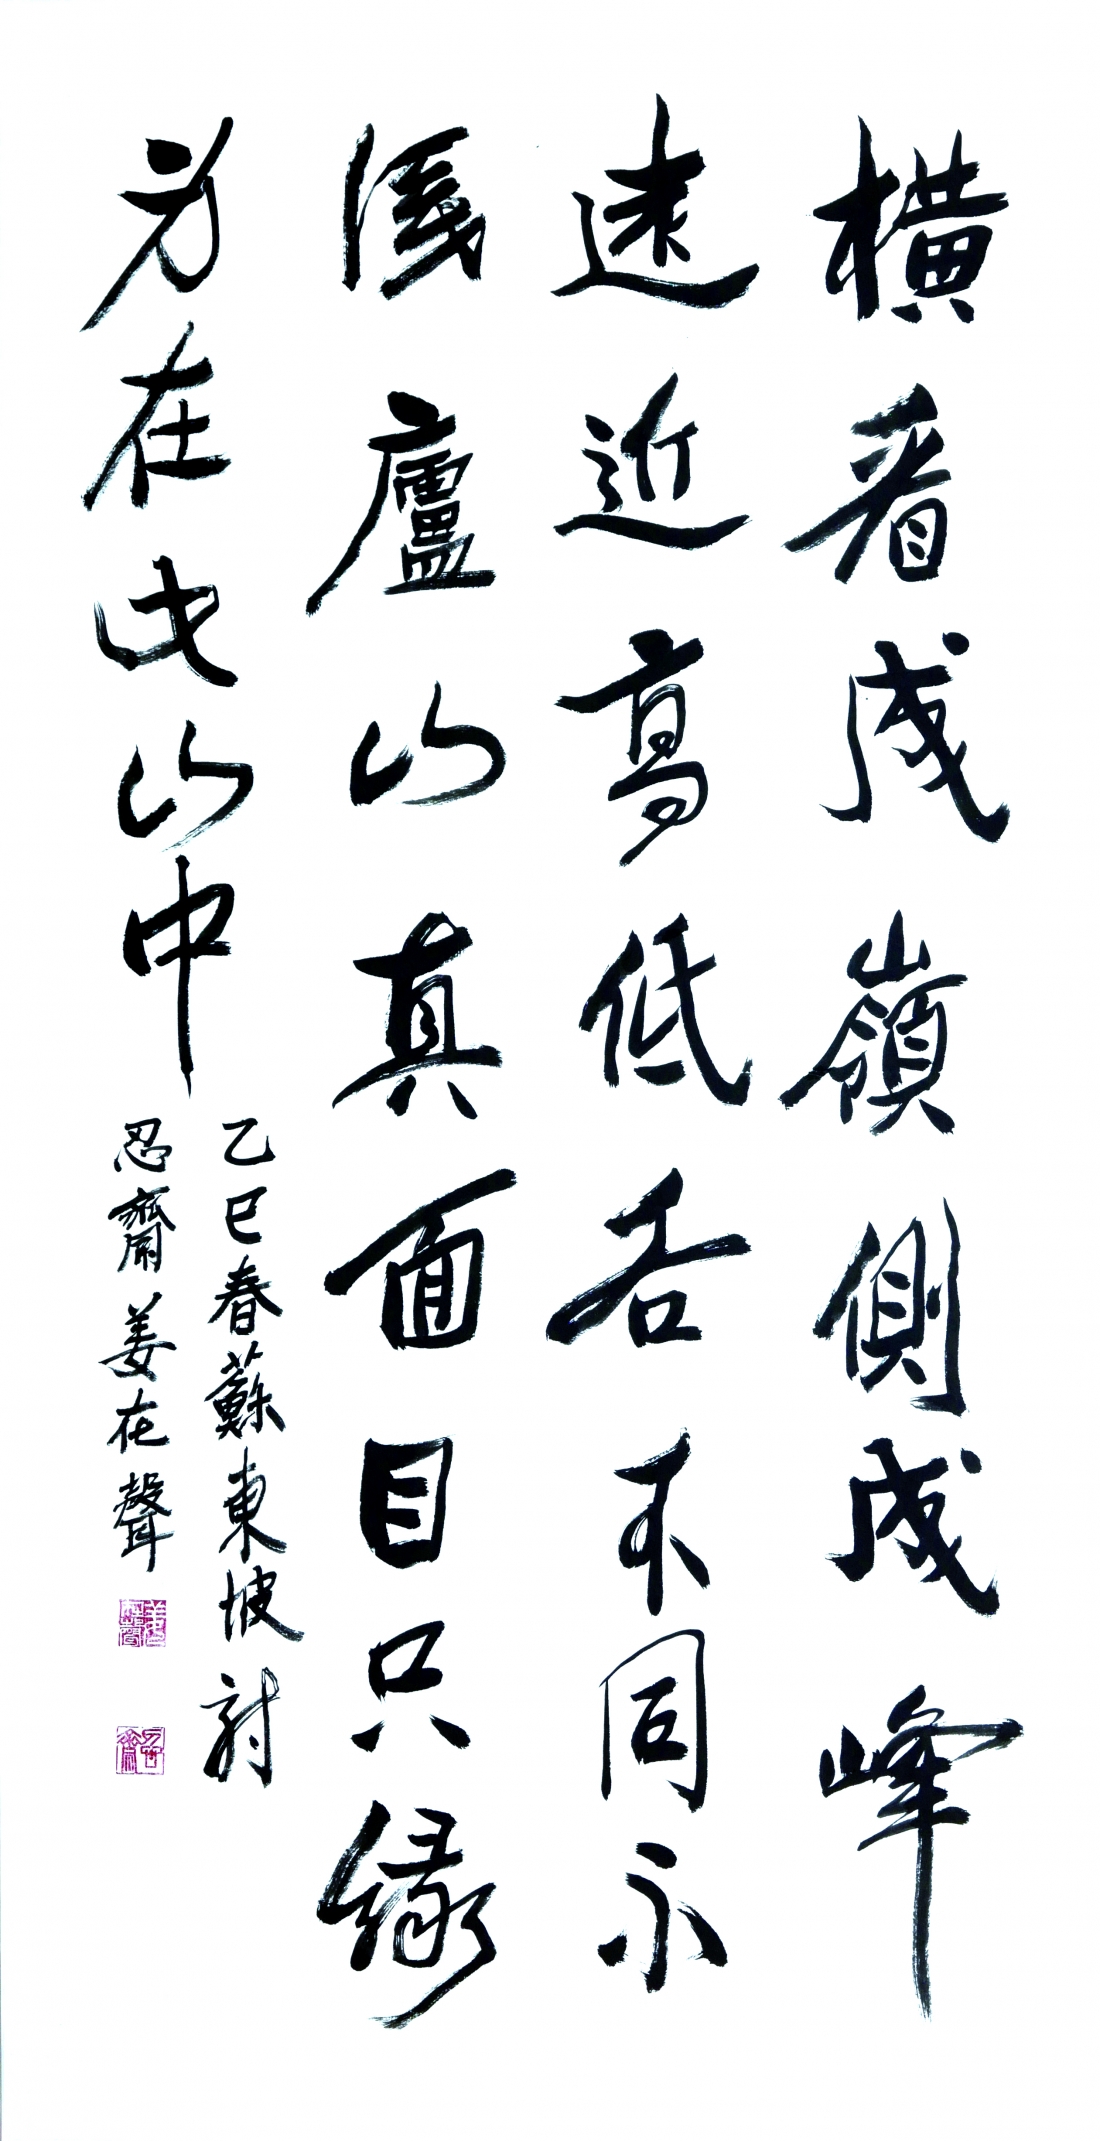 橫看成嶺側成峰
遠近高低各不同不
識廬山真面目只緣
身在此山中
乙巳春蘇東坡詩
忍齋姜在聲